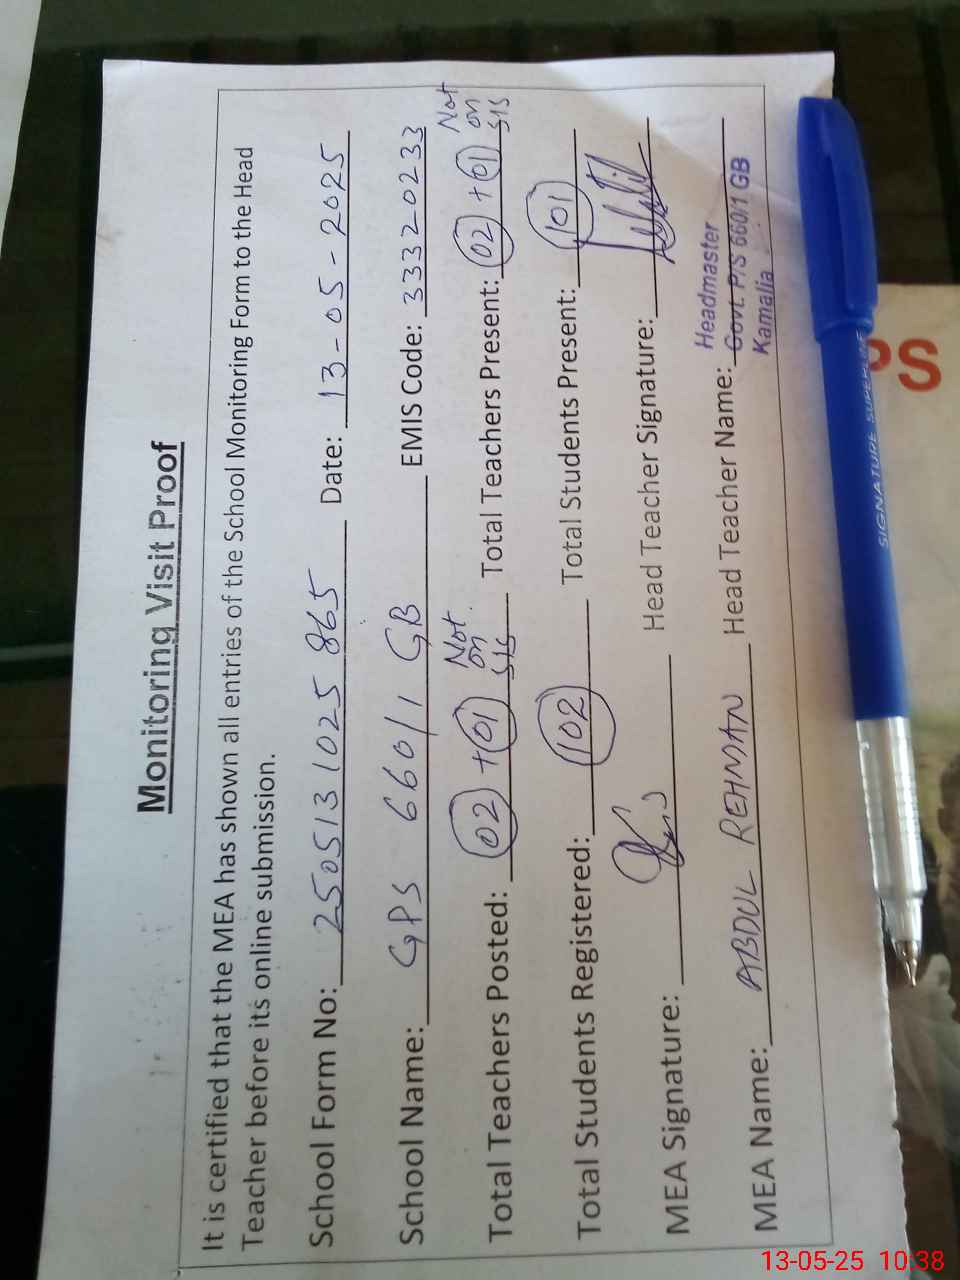 Monitoring Visit Proof
It is certified that the MEA has shown all entries of the School Monitoring Form to the Head
Teacher before its online submission.
School Form No: 2505131025865 Date: 13-05-2025
School Name: GPS 660/1 GB EMIS Code: 33320233
Total Teachers Posted: 02 + 01 Not on SIS Total Teachers Present: 02 + 01 Not on SIS
Total Students Registered: 102 Total Students Present: 101
MEA Signature: Head Teacher Signature:
MEA Name: ABDUL REHMAN Head Teacher Name:
Headmaster
Govt. P/S 660/1 GB
Kamalia
SIGNATURE
PS
13-05-25 10:38